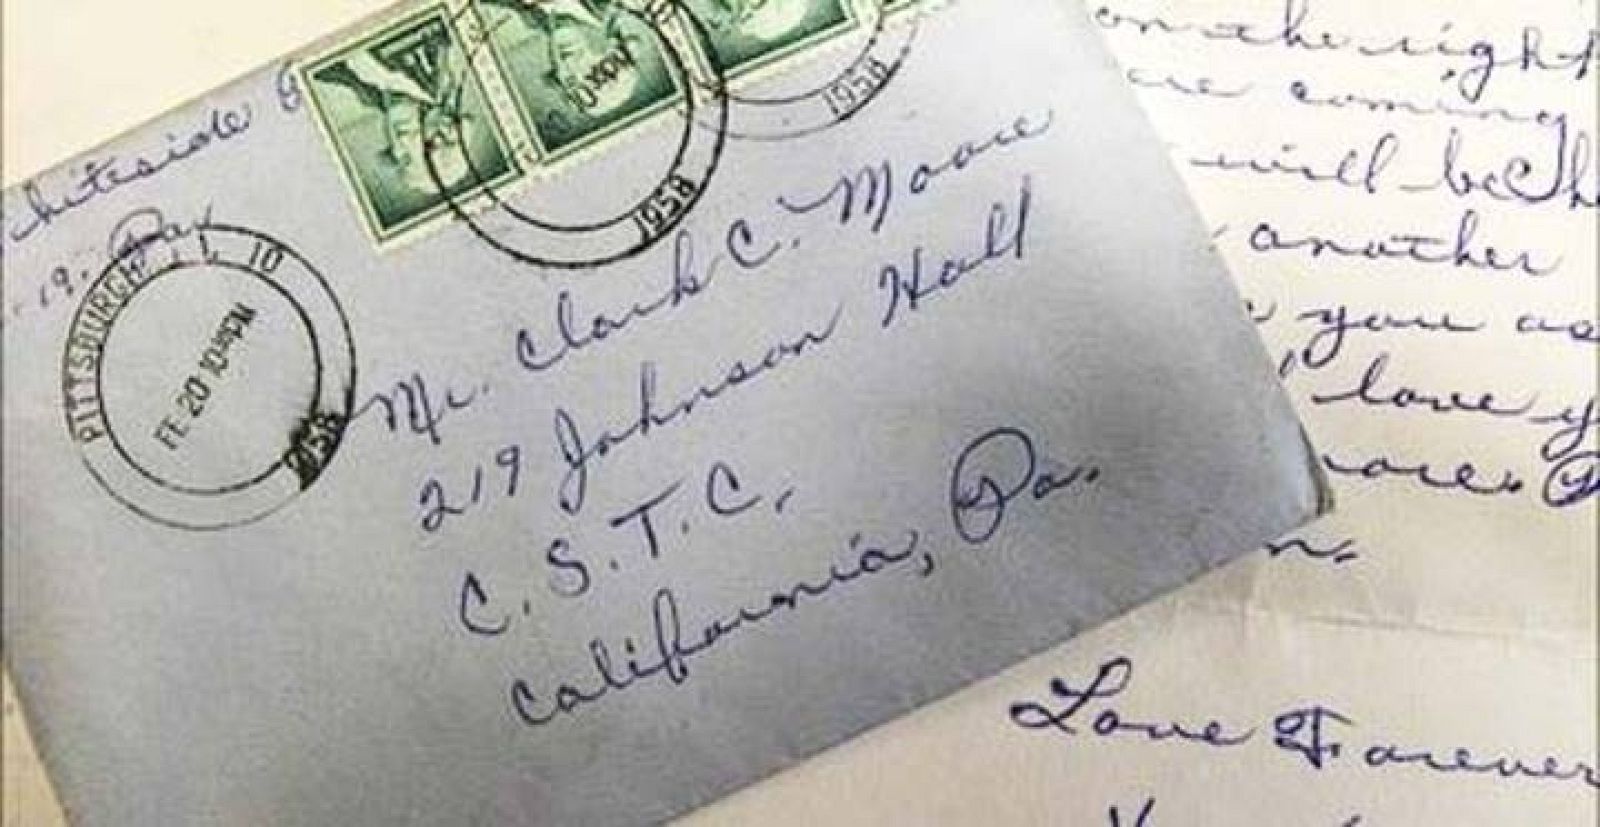 hiteside
19, Pa
PITTSBURGH 10
FE 20 10 PM
1958
10 PM
1958
1958
Mr. Clark C. Moore
219 Johnson Hall
C. S. T. C.
California, Pa.
on the right
are coming
will be
another
you as
love
more.
Love Forever